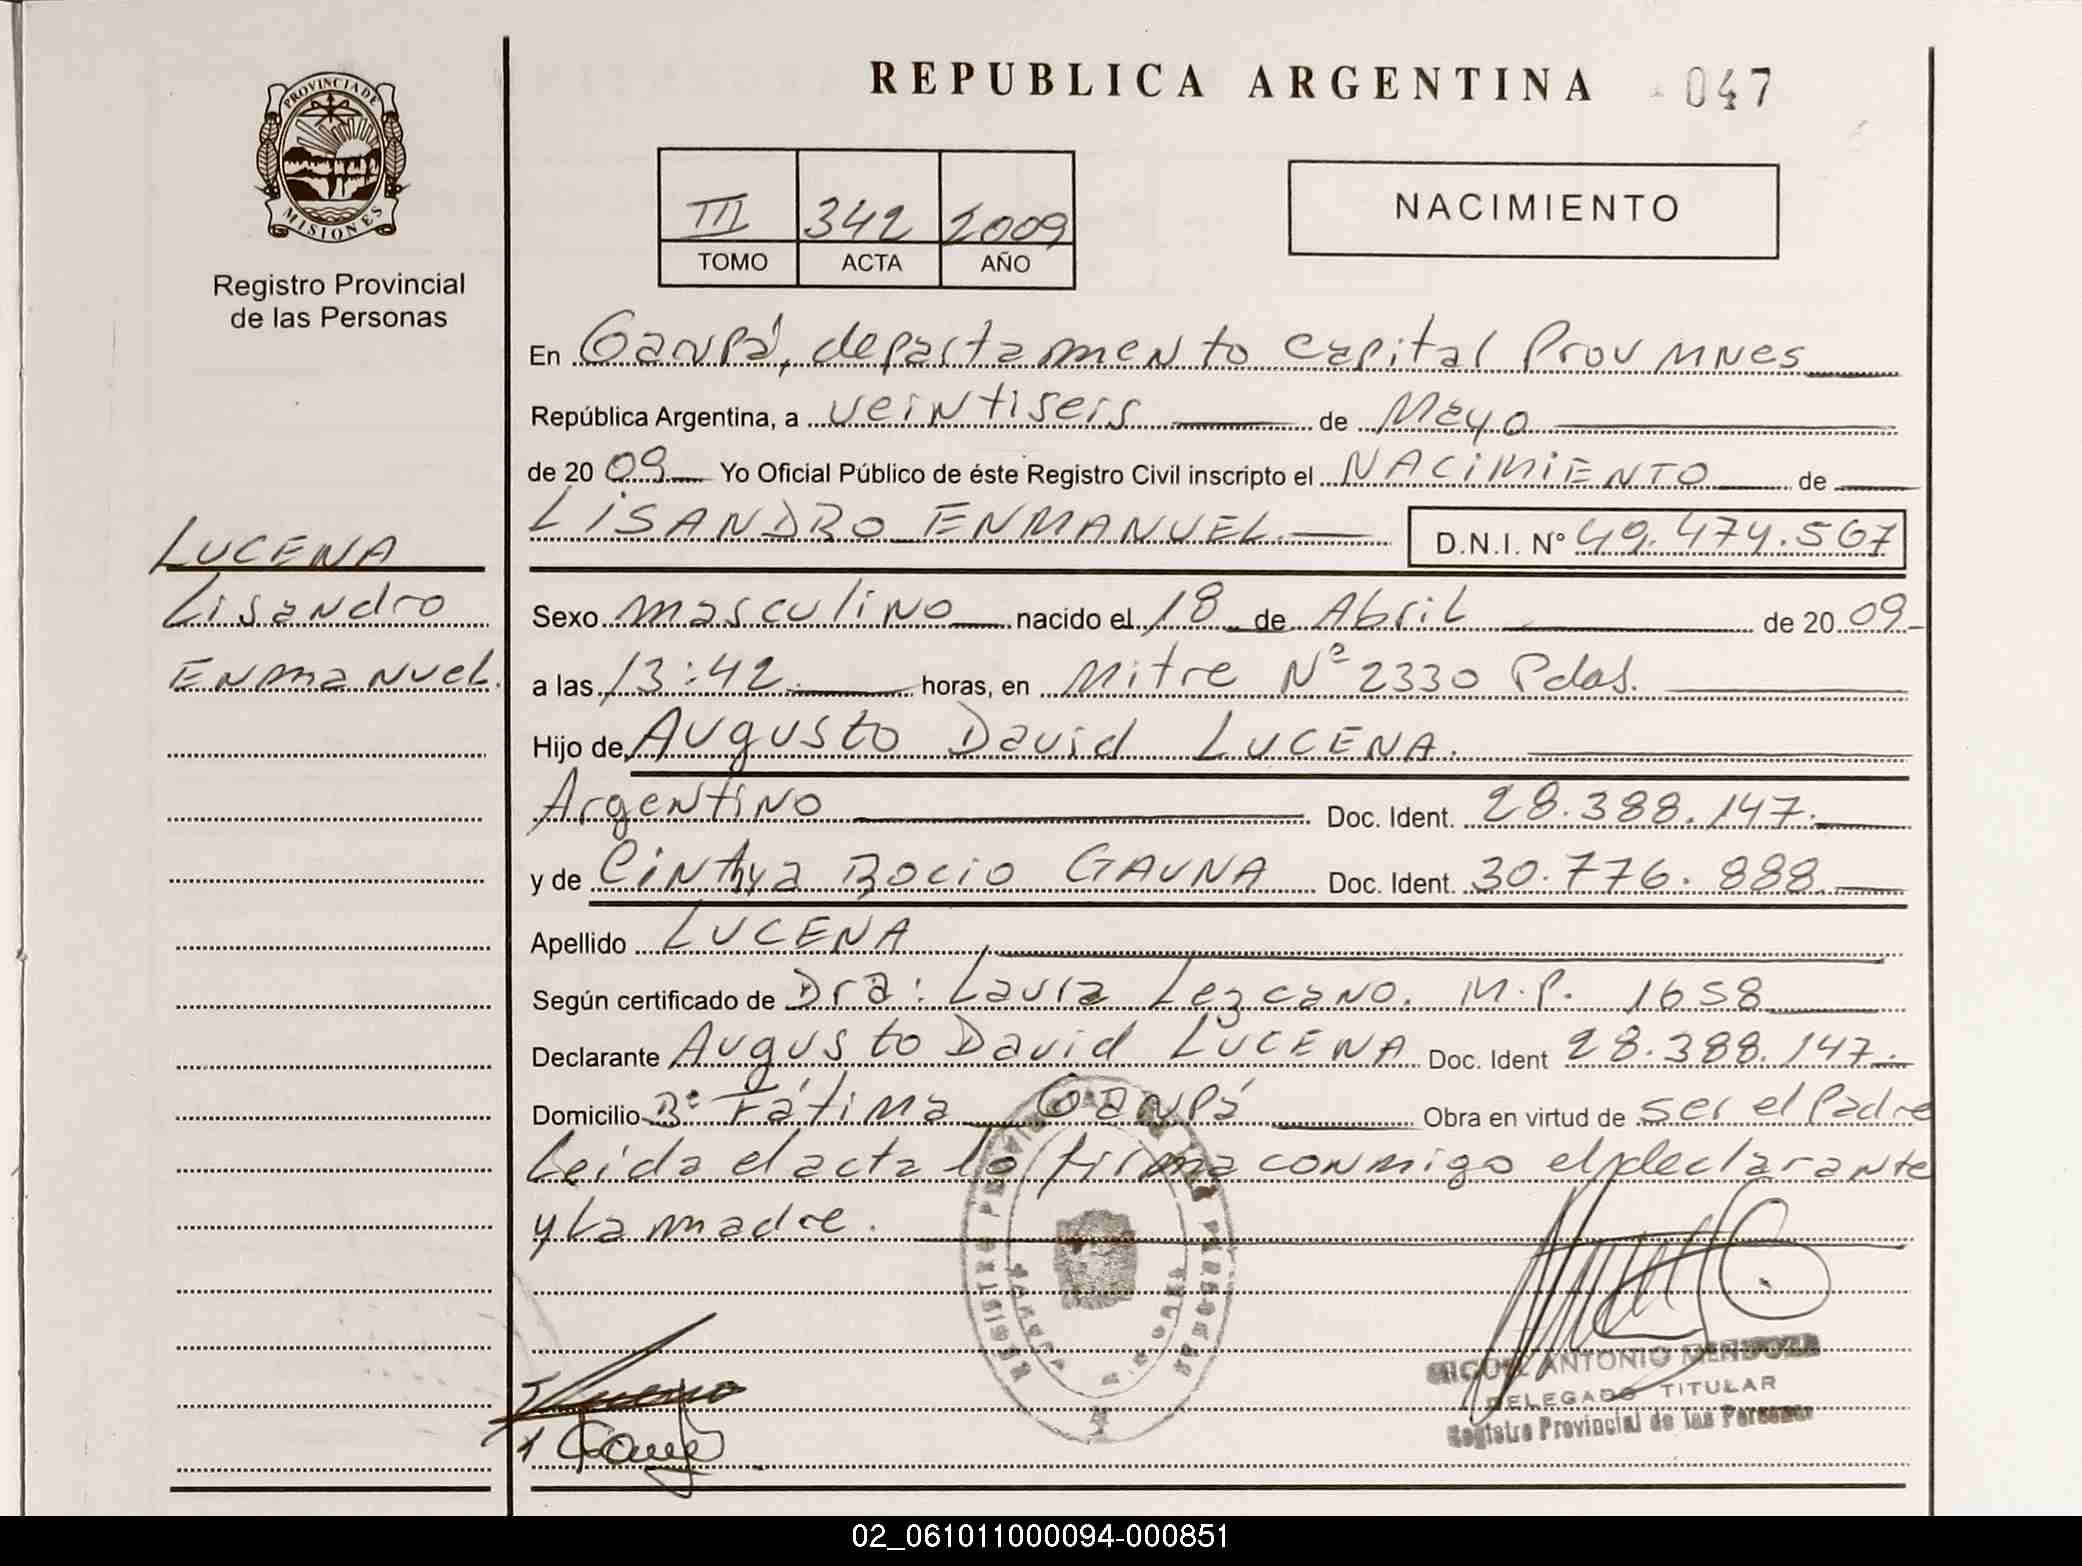 REPUBLICA ARGENTINA 047
PROVINCIA DE
MISIONES
Registro Provincial
de las Personas
III 342 2009
TOMO ACTA AÑO
NACIMIENTO
En Garupá, departamento Capital Prov Mnes
República Argentina, a veintiseis de Mayo
de 2009 Yo Oficial Público de éste Registro Civil inscripto el NACIMIENTO de
LISANDRO ENMANUEL. D.N.I. Nº 49.474.567
LUCENA
Lisandro
Enmanuel.
Sexo masculino nacido el 18 de Abril de 2009
a las 13:42 horas, en Mitre Nº 2330 Pdas.
Hijo de Augusto David LUCENA.
Argentino Doc. Ident. 28.388.147.
y de Cinthya Rocio GAUNA Doc. Ident. 30.776.888
Apellido LUCENA
Según certificado de Dra: Laura Lezcano. M.P. 1658
Declarante Augusto David LUCENA Doc. Ident 28.388.147.
Domicilio Bº Fátima Garupá Obra en virtud de ser el Padre
Leída el acta lo firma conmigo el declarante
y la madre.
REGISTRO PROVINCIAL DE LAS PERSONAS
MIGUEL ANTONIO MENDOZA
DELEGADO TITULAR
Registro Provincial de las Personas
02_061011000094-000851